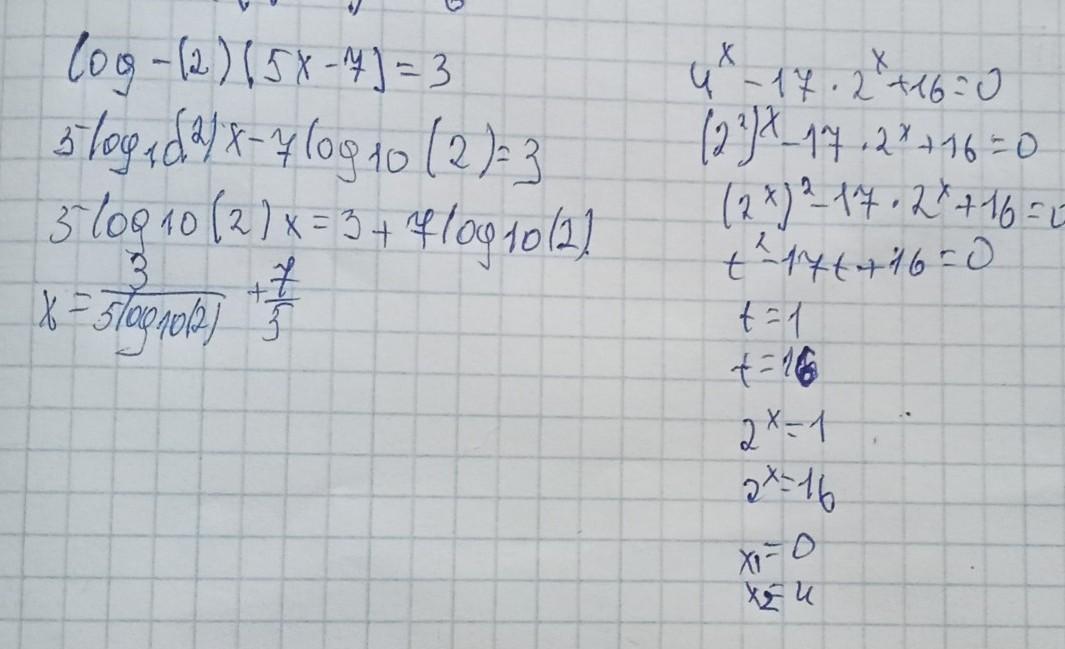 log-(2)(5x-7)=3
5log10(2)x-7log10(2)=3
5log10(2)x=3+7log10(2)
x=3/5log10(2)+7/5
4^x-17·2^x+16=0
(2²)^x-17·2^x+16=0
(2^x)²-17·2^x+16=0
t²-17t+16=0
t=1
t=16
2^x=1
2^x=16
x1=0
x2=4